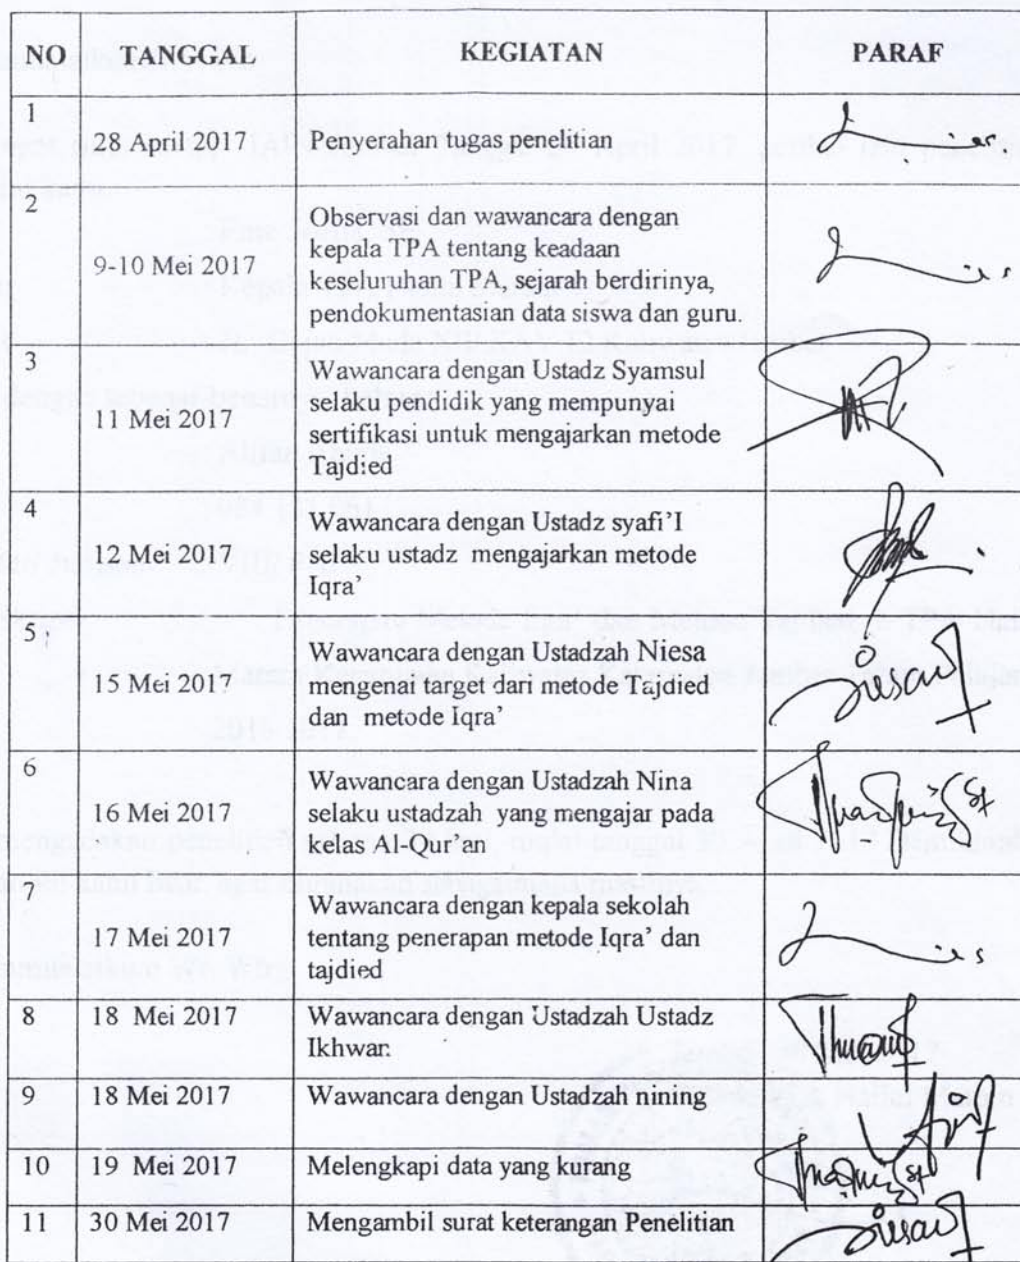 NO TANGGAL KEGIATAN PARAF
1
28 April 2017 Penyerahan tugas penelitian
2
Observasi dan wawancara dengan
kepala TPA tentang keadaan
9-10 Mei 2017 keseluruhan TPA, sejarah berdirinya,
pendokumentasian data siswa dan guru.
3
Wawancara dengan Ustadz Syamsul
11 Mei 2017 selaku pendidik yang mempunyai
sertifikasi untuk mengajarkan metode
Tajdied
4
Wawancara dengan Ustadz syafi'I
12 Mei 2017 selaku ustadz mengajarkan metode
Iqra'
5
Wawancara dengan Ustadzah Niesa
15 Mei 2017 mengenai target dari metode Tajdied
dan metode Iqra'
6
Wawancara dengan Ustadzah Nina
16 Mei 2017 selaku ustadzah yang mengajar pada
kelas Al-Qur'an
7
Wawancara dengan kepala sekolah
17 Mei 2017 tentang penerapan metode Iqra' dan
tajdied
8 18 Mei 2017 Wawancara dengan Ustadzah Ustadz
Ikhwan.
9 18 Mei 2017 Wawancara dengan Ustadzah nining
10 19 Mei 2017 Melengkapi data yang kurang
11 30 Mei 2017 Mengambil surat keterangan Penelitian